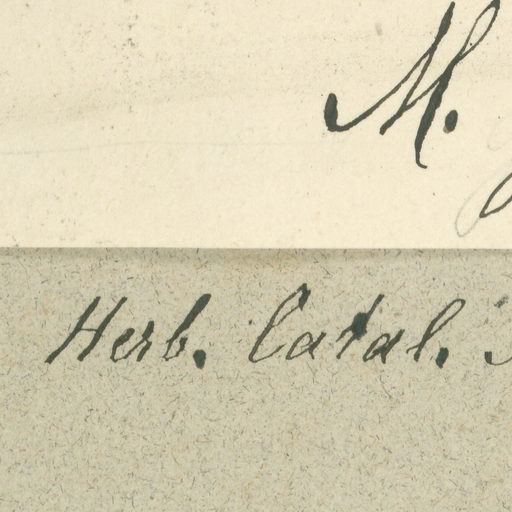 M.
Herb. Catal.